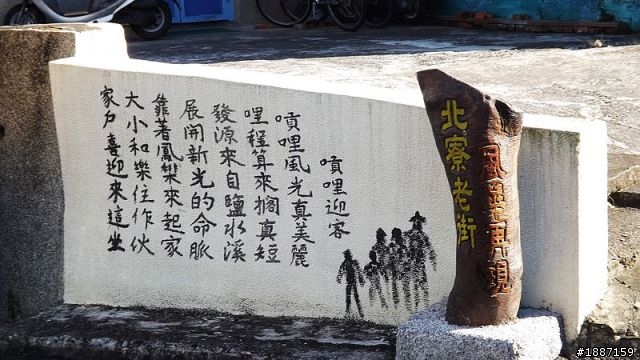 噴哩迎客
噴哩風光真美麗
哩程算來擱真短
發源來自鹽水溪
展開新光的命脈
靠著鳳梨來起家
大小和樂住作伙
家戶喜迎來這坐
北寮老街
風華再現
#1887159